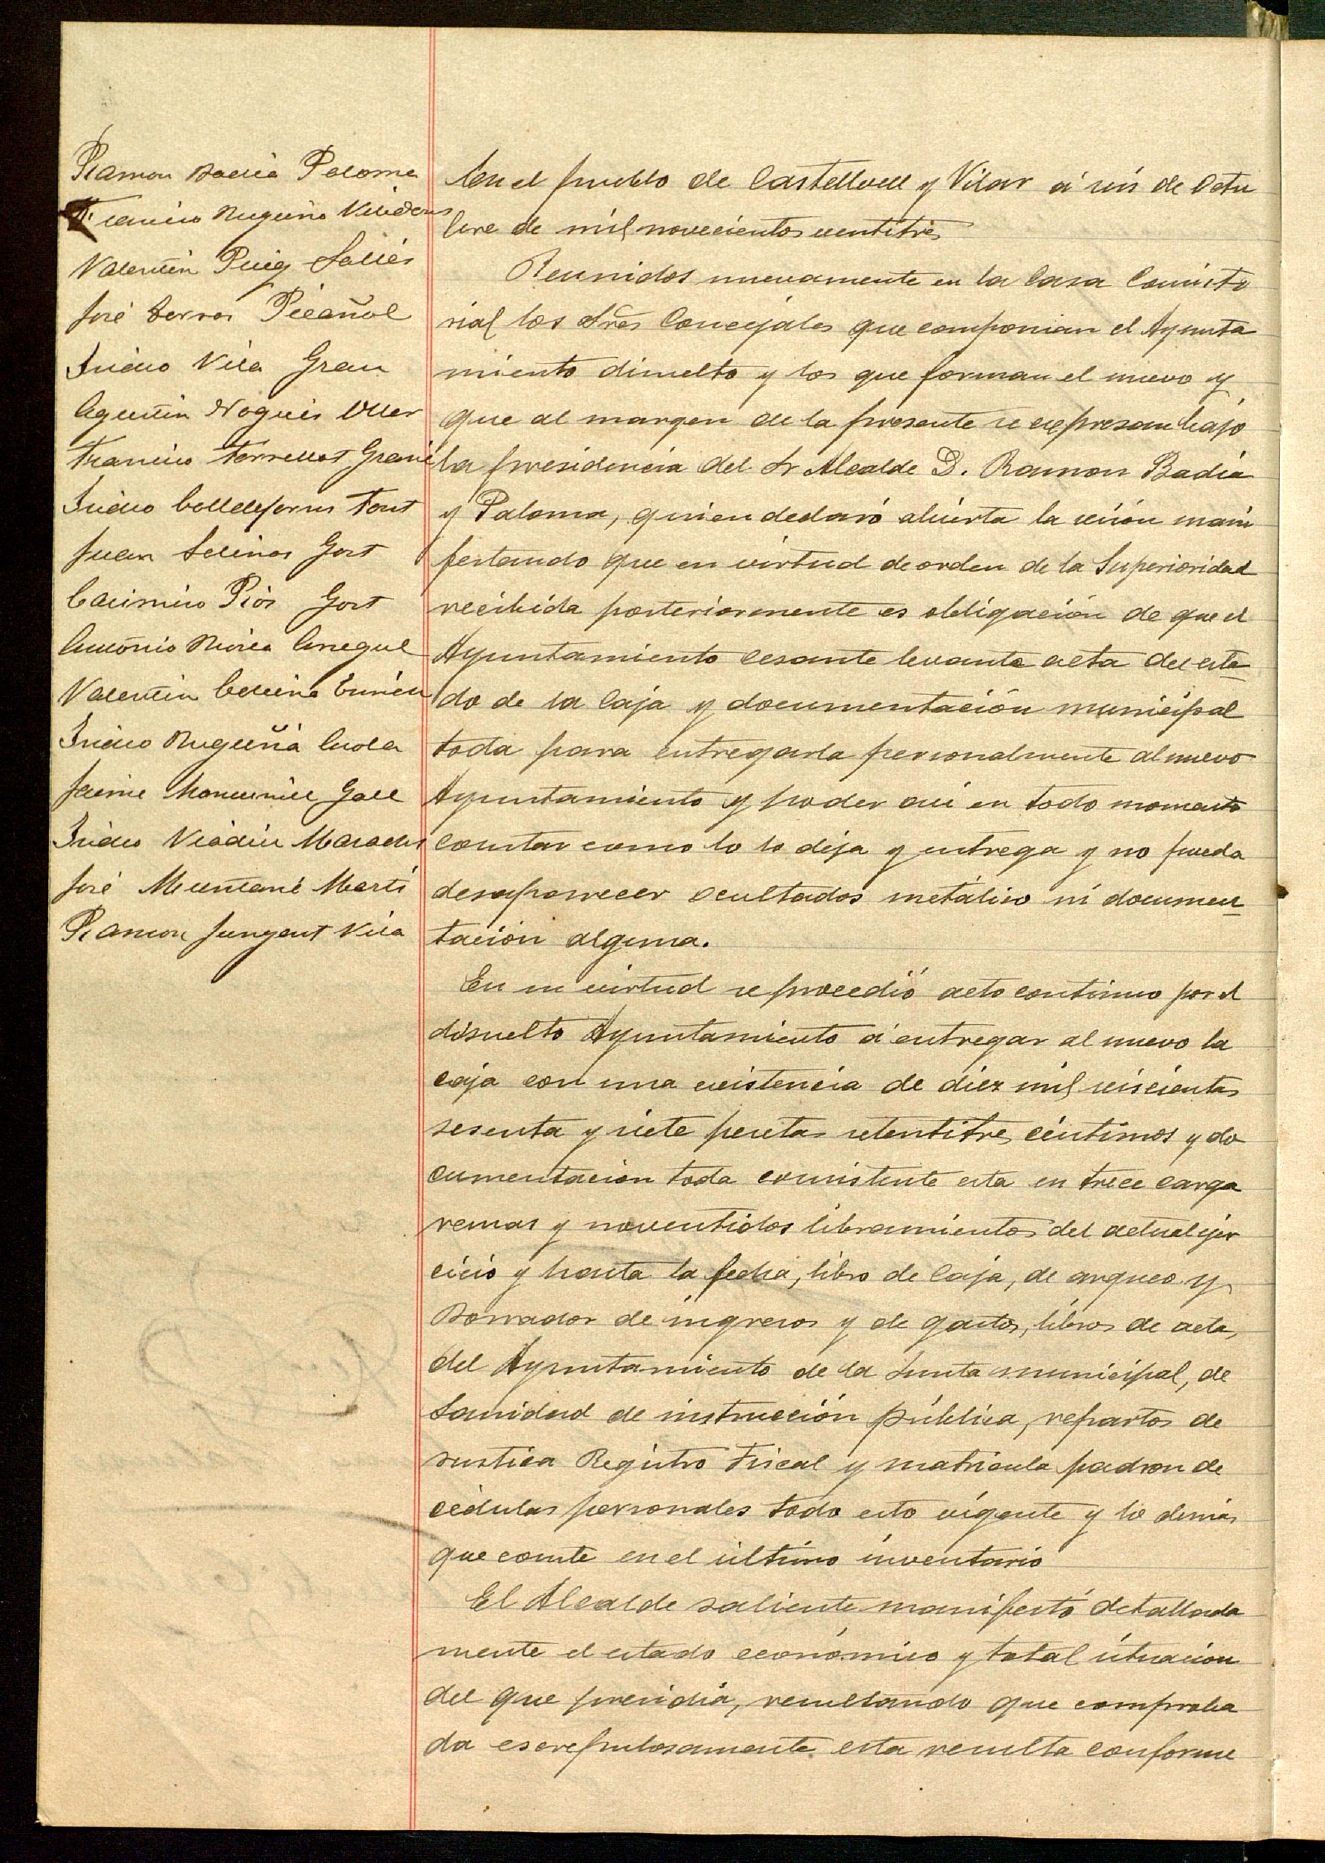 Ramon Badia Paloma
Francisco Noguera
Valentin Puig Sallés
José Serra Picañol
Isidro Vila Grau
Agustin Noguer Oller
Francisco Torrellas
Isidro Calldeforns Font
Juan Selinas Gort
Casimiro Piós Gort
Antonio Riera Arregul
Valentin
Isidro Noguera
Jaime Moncunill Gall
Isidro Viladiu Maracles
José Muntané Marti
Ramon Junyent Vila
En el pueblo de Castellvell y Vilar á seis de Octu
bre de mil novecientos ventitres
Reunidos nuevamente en la Casa Consisto
rial los Sres Concejales que componian el Ayunta
miento disuelto y los que forman el nuevo y
que al margen de la presente se expresan bajo
la presidencia del Sr Alcalde D. Ramon Badia
y Paloma, quien declaró abierta la sesión mani
festando que en virtud de orden de la Superioridad
recibida posteriormente es obligación de que el
Ayuntamiento cesante levante acta del esta
do de la Caja y documentación municipal
toda para entregarla personalmente al nuevo
Ayuntamiento y poder asi en todo momento
constar como lo lo deja y entrega y no pueda
desaparecer ocultados metálico ni documen
tación alguna.
En su virtud se procedió acto continuo por el
disuelto Ayuntamiento á entregar al nuevo la
caja con una existencia de diez mil seiscientas
sesenta y siete pesetas setentitres céntimos y do
cumentacion toda consistente esta en trece carga
remas y noventidos libramientos del actual ejer
cicio y hasta la fecha, libro de Caja, de arqueo y
Borrador de ingresos y de gastos, libros de actas
del Ayuntamiento de la Junta municipal, de
Sanidad de instrucción pública, repartos de
rustica Registro Fiscal y matricula padron de
cédulas personales todo esto vigente y lo demás
que conste en el último inventario
El Alcalde saliente manifestó detallada
mente el estado económico y total situacion
del que presidia, resultando que comproba
da escrepulosamente esta resulta conforme